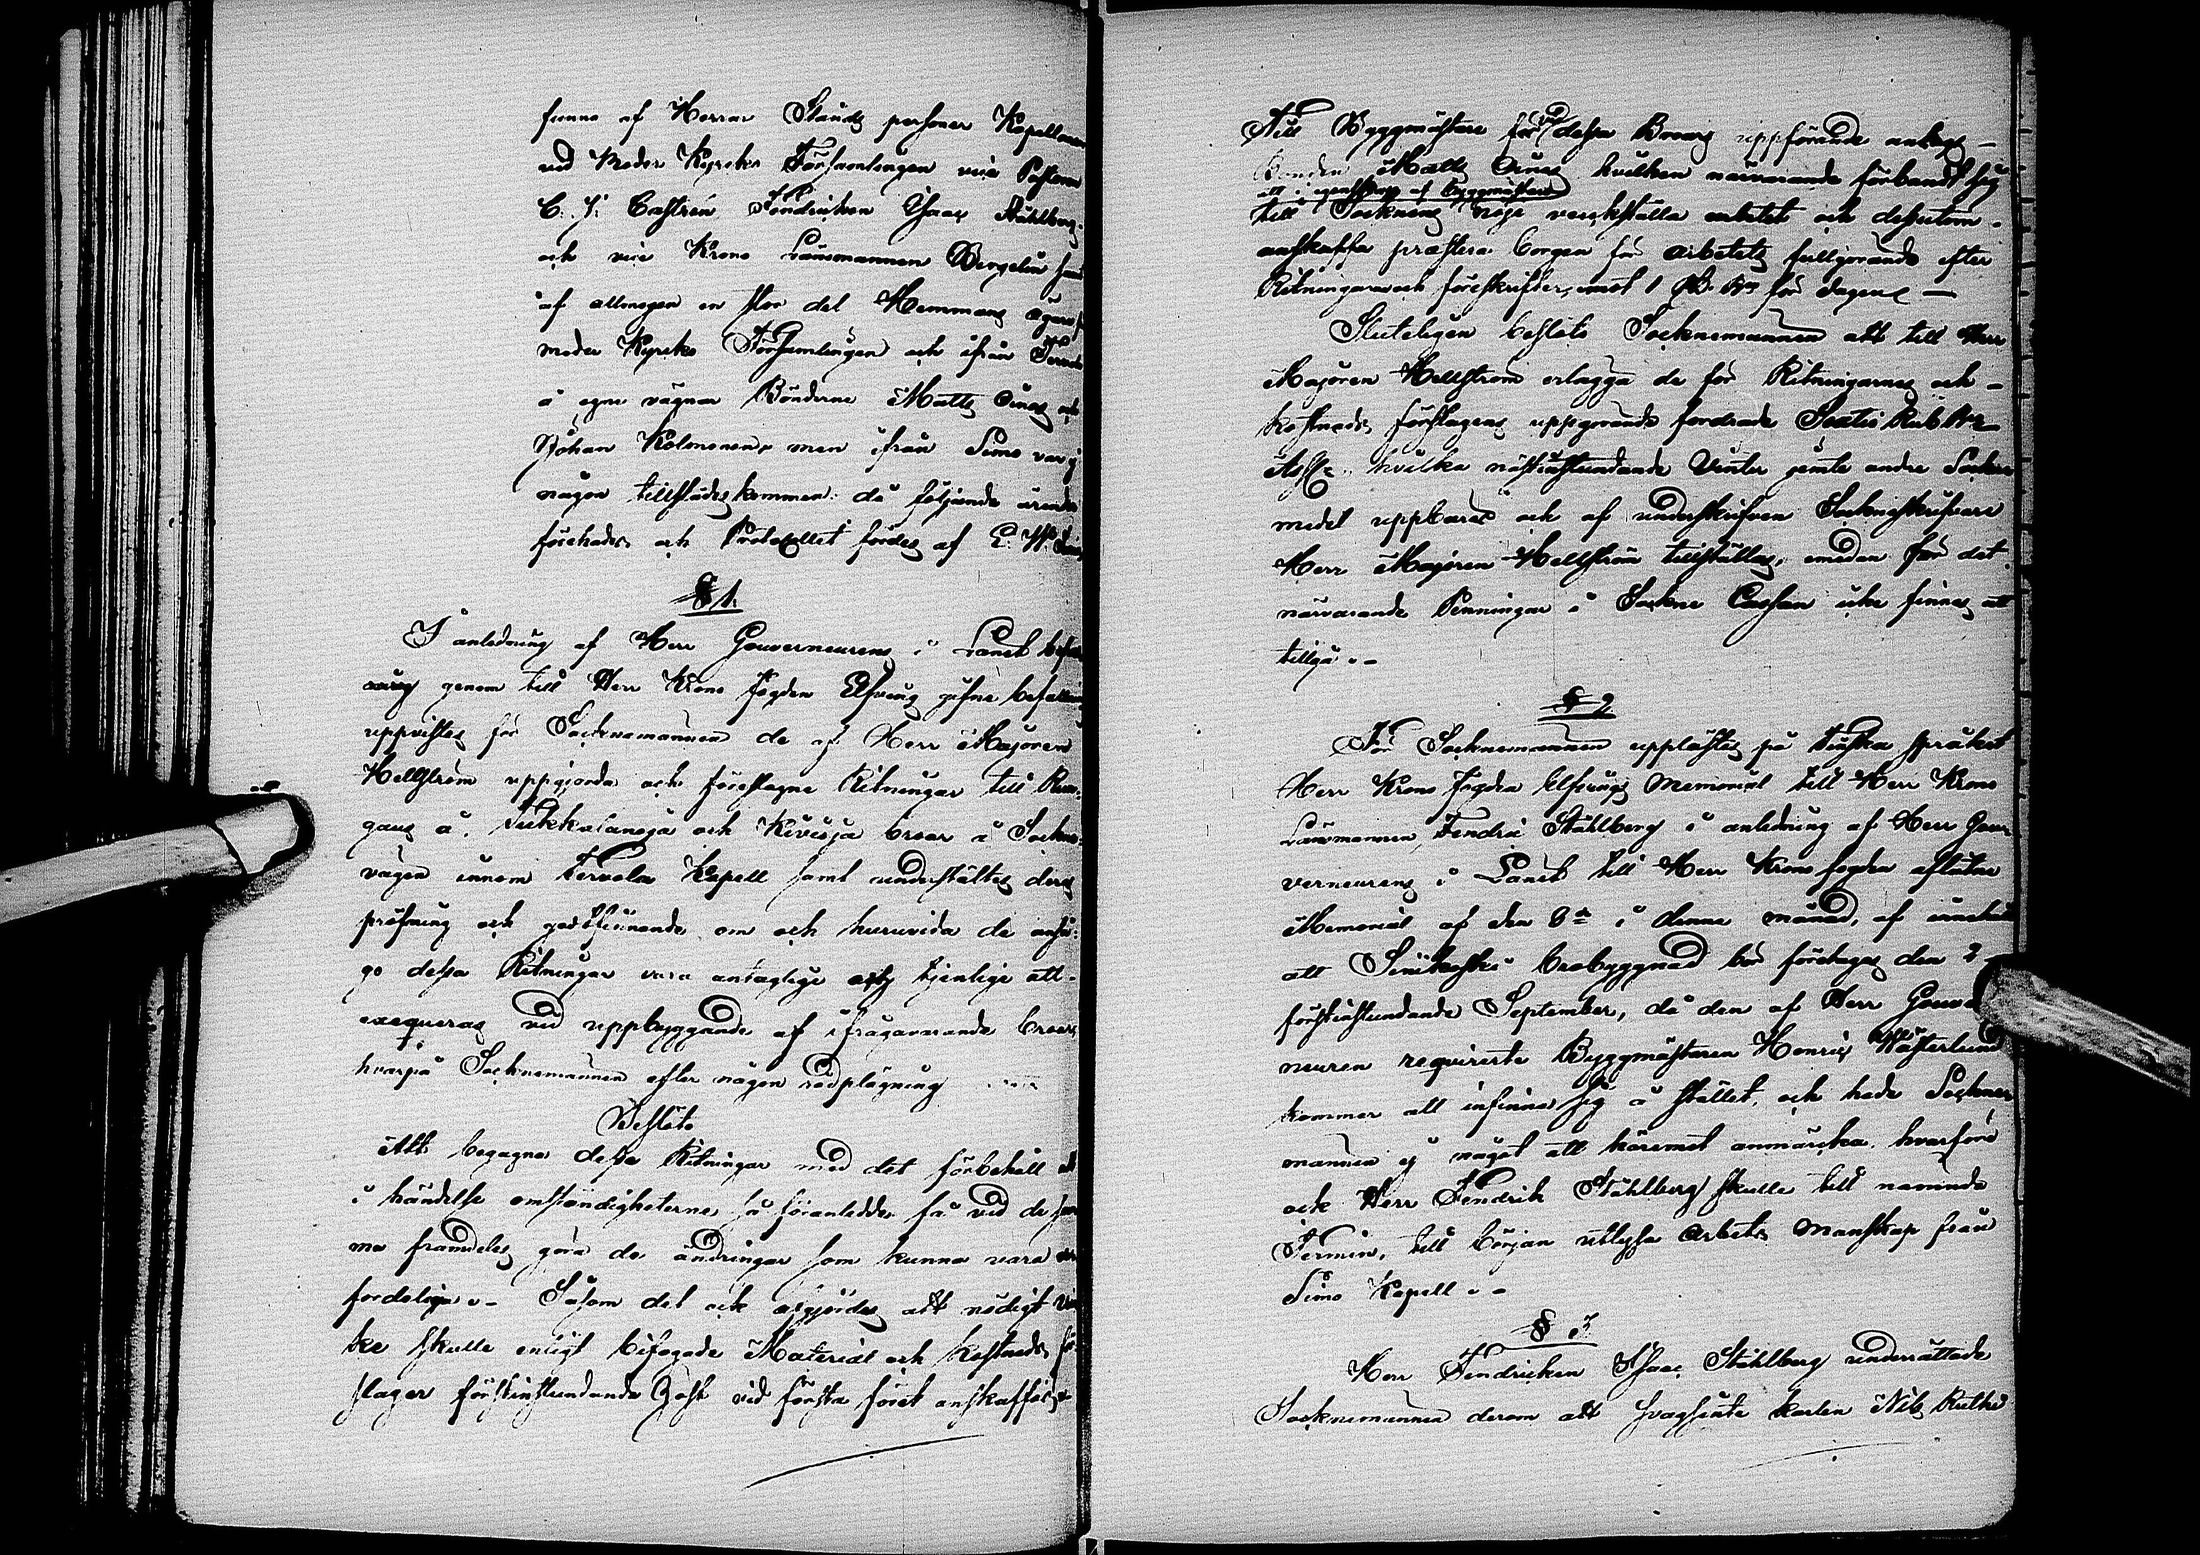 funno af Herrar Stånds personer Kapellanen
vid Moder Kyrcko Församlingen vice Pastorn
C. J. Castrén Fendricken Isaac Ståhlberg
och vice Krono Länsmannen Bergelin samt
af allmogen en stor del Hemmans ägare i
moder Kyrcko Församlingen och ifrån Tervola
å egne vägnar Bönderne Matts Oinas och
Johan Kolmonen, men ifrån Simo var ej
någon tillstädes kommen: då följande ärender
förehades och Protocollet fördes af E. W.
§ 1.
I anledning af Herr Gouverneurens i Länet
genom till Herr Krono fogden Elfving gifne befallning
uppvistes för Socknemännen de af Herr Majoren
Hellström uppgjorda och föreslagne Ritningar till
å och Kivioja broar å Sockne-
vägen innom Tervola Kapell samt underställtes deras
pröfning och godkännande om och huruvida de anså-
go dessa Ritningar vara antaglige och tjenlige att
exequeras vid uppbyggande af ifrågavarande broar,
hvarpå Socknemännen efter någon rådplägning
Beslöto
Att begagna dessa Ritningar med det förbehåll att
i händelse omständigheterne så föranledde få vid de sam-
ma framdeles göra de ändringar som kunna vara
fordeliga. - Såsom det ock afgjordes att nödigt Vir-
ke skulle enligt bifogade Material och kostnads för-
slager förstinstundande Höst vid första föret anskaffas.
Till Byggmästare för dessa Broars uppförande antogs
Bonden Matts Oinas hvilken närvarande förbandt sig
att i egenskap af Byggmästare
till Socknens nöje verkställa arbetet och dessutom
anskaffa præstera borgen för arbetets fullgörande efter
Ritningar och föreskrifter, emot 1 R. B:co för dagen. -
Sluteligen beslöto Socknemännen att till Herr
Majoren Hellström erlägga de för Ritningarnes och
kostnads förslagens uppgörande fordrade Sextio Rub.
Ass. hvilka nästinstundande Vinter jemte andre Sockne
medel uppbäras och af underskrifven Sockneskrifvare
Herr Majoren Hellström tillställas, emedan för det
närvarande Penningar i Sockne Cassan icke finnas att
tillgå. -
§ 2
För Socknemännen upplästes på finska språket
Herr Krono fogden Elfvings Memorial till Herr Krono
Länsmannen, Fendric Ståhlberg i anledning af Herr Gou-
verneurens i Länet till Herr Krono fogden aflåtne
Memorial af den 8de i denne månad, af innehåll
att Simikoski brobyggnad bör företages den 2
förstinstundande September, då den af Herr Gouver-
neuren requirerte Byggmästaren Henric Wästerlund
kommer att infinna sig å stället, och hade Sockne-
männen ej något att häremot anmärcka. hvarföre
ock Herr Fendrik Ståhlberg skulle till nämnde
Termin, till början utlysa arbets manskap från
Simo Kapell. -
§ 3
Herr Fendricken Isaac Ståhlberg underrättade
Socknemännen derom att svagsinte karlen Nils